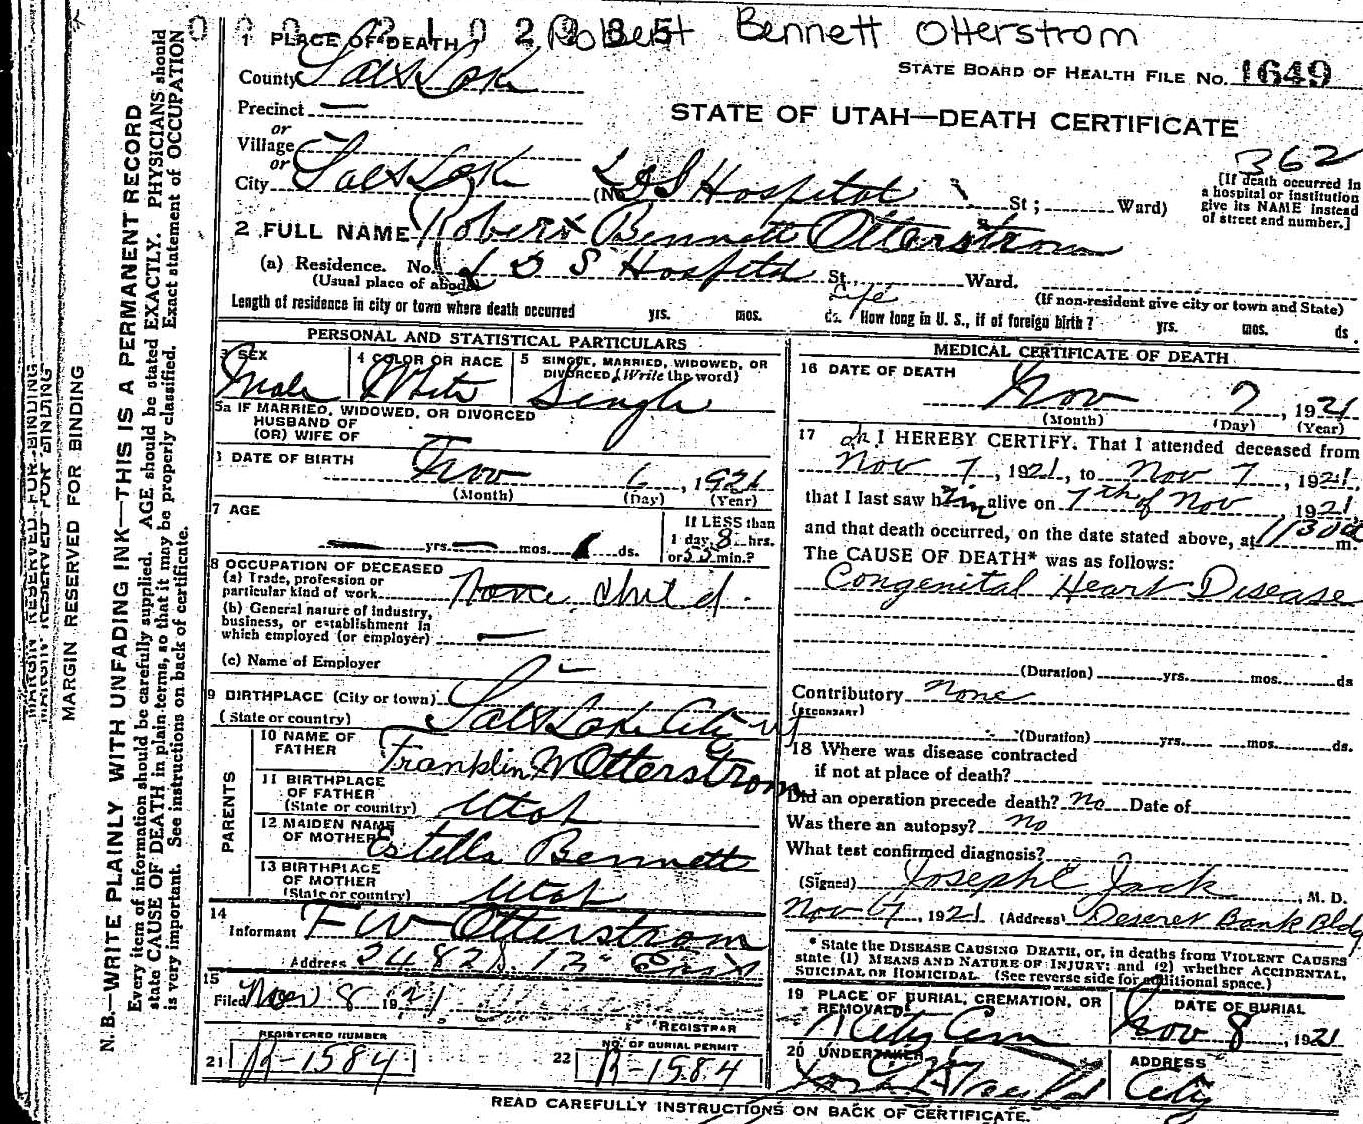 0 0 0 2 1 0 2 9 3 5 Robert Bennett Otterstrom
1 PLACE OF DEATH
STATE BOARD OF HEALTH FILE NO. 1649
County Salt Lake
Precinct —
STATE OF UTAH—DEATH CERTIFICATE
or
Village
or
362
City Salt Lake (No. L D S Hospital St; Ward)
[If death occurred in
a hospital or institution
give its NAME instead
of street and number.]
2 FULL NAME Robert Bennett Otterstrom
(a) Residence. No. L D S Hospital St., Ward.
(Usual place of abode)
(If non-resident give city or town and State)
Length of residence in city or town where death occurred yrs. mos. ds. Life How long in U. S., if of foreign birth? yrs. mos. ds.
PERSONAL AND STATISTICAL PARTICULARS
3 SEX
Male
4 COLOR OR RACE
White
5 SINGLE, MARRIED, WIDOWED, OR
DIVORCED (Write the word)
Single
5a IF MARRIED, WIDOWED, OR DIVORCED
HUSBAND OF
(OR) WIFE OF —
DATE OF BIRTH
Nov 6, 1921
(Month) (Day) (Year)
7 AGE
— yrs. — mos. 1 ds.
If LESS than
1 day, 8 hrs.
or 55 min.?
8 OCCUPATION OF DECEASED
(a) Trade, profession or
particular kind of work None, child.
(b) General nature of industry,
business, or establishment in
which employed (or employer) —
(c) Name of Employer
9 BIRTHPLACE (City or town)
(State or country) Salt Lake City Ut
PARENTS
10 NAME OF
FATHER Franklin W Otterstrom
11 BIRTHPLACE
OF FATHER
(State or country) Utah
12 MAIDEN NAME
OF MOTHER Estella Bennett
13 BIRTHPLACE
OF MOTHER
(State or country) Utah
14
Informant F W Otterstrom
Address 2482 S. 12" East
15
Filed Nov 8 1921
REGISTRAR
REGISTERED NUMBER
21 R-1584
NO. OF BURIAL PERMIT
22 R-1584
MEDICAL CERTIFICATE OF DEATH
16 DATE OF DEATH
Nov 7, 1921
(Month) (Day) (Year)
17 I HEREBY CERTIFY, That I attended deceased from
Nov 7, 1921, to Nov 7, 1921.
that I last saw him alive on 7th of Nov, 1921
and that death occurred, on the date stated above, at 1130a m.
The CAUSE OF DEATH* was as follows:
Congenital Heart Disease
(Duration) yrs. mos. ds
Contributory None
(SECONDARY)
(Duration) yrs. mos. ds.
18 Where was disease contracted
if not at place of death?
Did an operation precede death? No Date of
Was there an autopsy? No
What test confirmed diagnosis?
(Signed) Joseph E Jack, M. D.
Nov 7, 1921 (Address) Deseret Bank Bldg
* State the DISEASE CAUSING DEATH, or, in deaths from VIOLENT CAUSES
state (1) MEANS AND NATURE OF INJURY; and (2) whether ACCIDENTAL,
SUICIDAL or HOMICIDAL. (See reverse side for additional space.)
19 PLACE OF BURIAL, CREMATION, OR
REMOVAL
City Cem
DATE OF BURIAL
Nov 8, 1921
20 UNDERTAKER
ADDRESS
City
READ CAREFULLY INSTRUCTIONS ON BACK OF CERTIFICATE.
MARGIN RESERVED FOR BINDING
MARGIN RESERVED FOR BINDING
N. B.—WRITE PLAINLY WITH UNFADING INK—THIS IS A PERMANENT RECORD
Every item of information should be carefully supplied. AGE should be stated EXACTLY. PHYSICIANS should
state CAUSE OF DEATH in plain terms, so that it may be properly classified. Exact statement of OCCUPATION
is very important. See instructions on back of certificate.